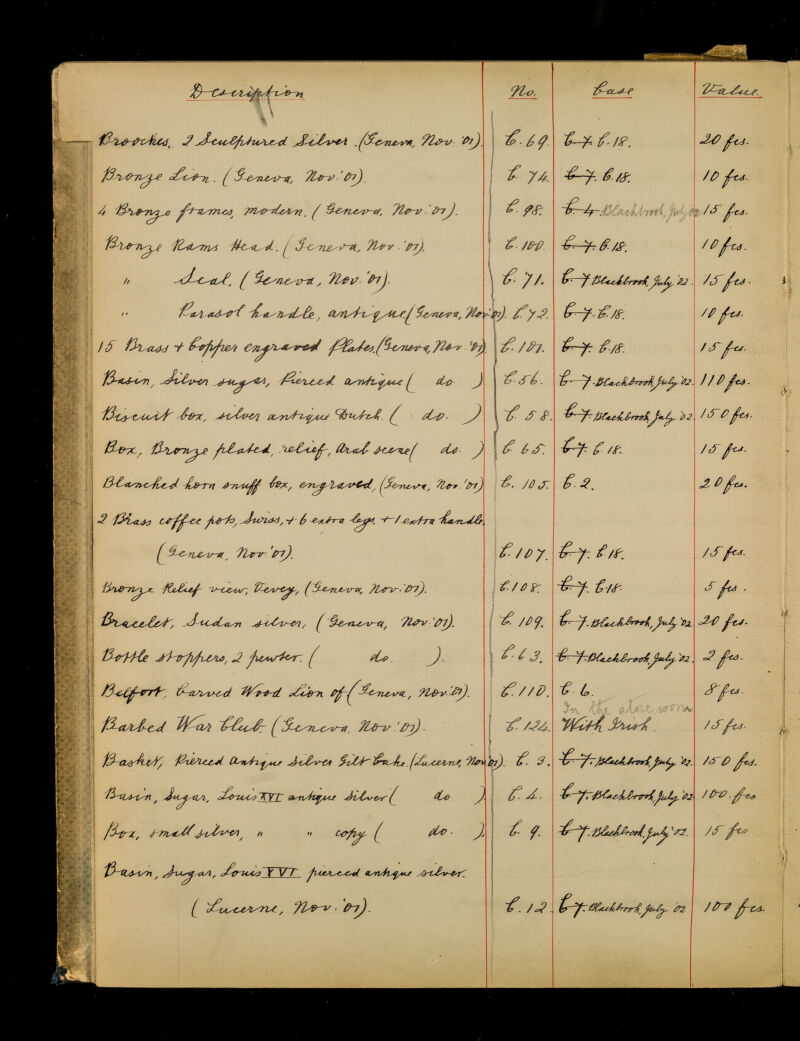 Description No. Case Value.
Brooches, 2 Sculptured Silver. (Geneva, Nov. '01). C. 69. C. 7. C. 18. 20 fcs.
Bronze Lion. (Geneva, Nov. '01). C. 74. C. 7. C. 18. 10 fcs.
4 Bronze frames, modern. (Geneva, Nov. '01). C. 98. C. 4. Blackbrook, July 02 15 fcs.
Bronze Rams Head. (Geneva, Nov. '01). C. 100. C. 7. C. 18. 10 fcs.
" Seal, (Geneva, Nov. '01). C. 71. C. 7 Blackbrook, July '02. 15 fcs.
" Parasol handle, antique (Geneva, Nov. '01). C. 72. C. 7. C. 18. 10 fcs.
15 Brass & Copper engraved Plates, (Geneva, Nov. '01). C. 101. C. 7. C. 18. 15 fcs.
Basin, Silver sugar, Pierced antique ( do ) C. 56. C. 7. Blackbrook July '02. 110 fcs.
Biscuit box, silver antique Dutch. ( do. ) C. 58. C. 7. Blackbrook July 02. 150 fcs.
Box, Bronze plated, relief, Arab scene ( do ) C. 65. C. 7. C. 18. 15 fcs.
Blanched horn snuff box, engraved, (Geneva, Nov. '01) C. 105. C. 2. 20 fcs.
2 Brass coffee pots, Swiss, & 6 extra legs, & 1 extra handle,
(Geneva, Nov '01). C. 107. C. 7. C. 18. 15 fcs.
Bronze Relief view, Vevey, (Geneva, Nov. '01). C. 108. C. 7. C. 18. 5 fcs.
Bracelet, Sudan silver, (Geneva, Nov '01). C. 109. C. 7. Blackbrook, July '02 20 fcs.
Bottle stoppers, 2 pewter. ( do. ). C. 63. C. 7. Blackbrook July 02. 2 fcs.
Belfort, Carved Wood Lion of (Geneva, Nov. '01). C. 110. C. 6. 8 fcs.
In the store room
Barbed War Club. (Geneva, Nov. '01). C. 124. With Irish. 15 fcs.
Basket, Pierced Antique Silver Gilt Cake. (Lucerne, Nov. '01). C. 3. C. 7. Blackbrook July '02. 150 fcs.
Basin, Sugar, Louis XVI antique silver ( do ) C. 4. C. 7. Blackbrook, July '02. 100. fcs
Box, small silver, " " copy ( do. ). C. 9. C. 7. Blackbrook July '02. 15 fcs
Basin, Sugar, Louis XVI pierced antique silver.
(Lucerne, Nov. '01). C. 12. C. 7. Blackbrook July 02 100 fcs